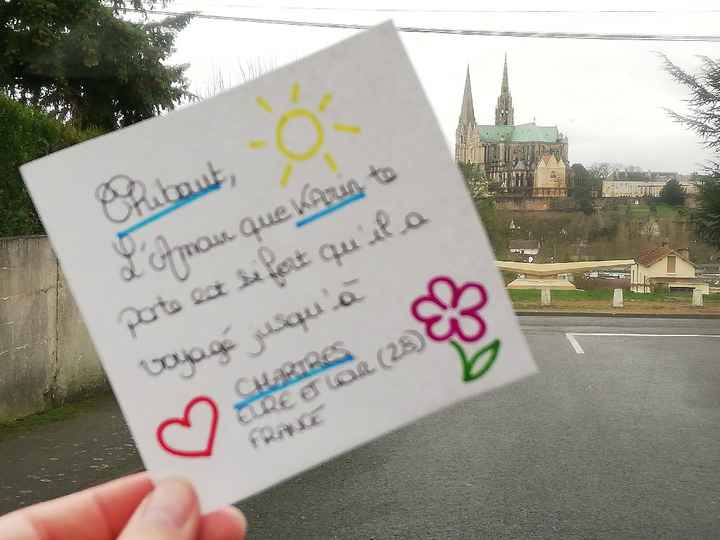 Thibaut,
L'Amour que Karin te
porte est si fort qu'il a
voyagé jusqu'à
CHARTRES
EURE ET LOIR (28)
FRANCE